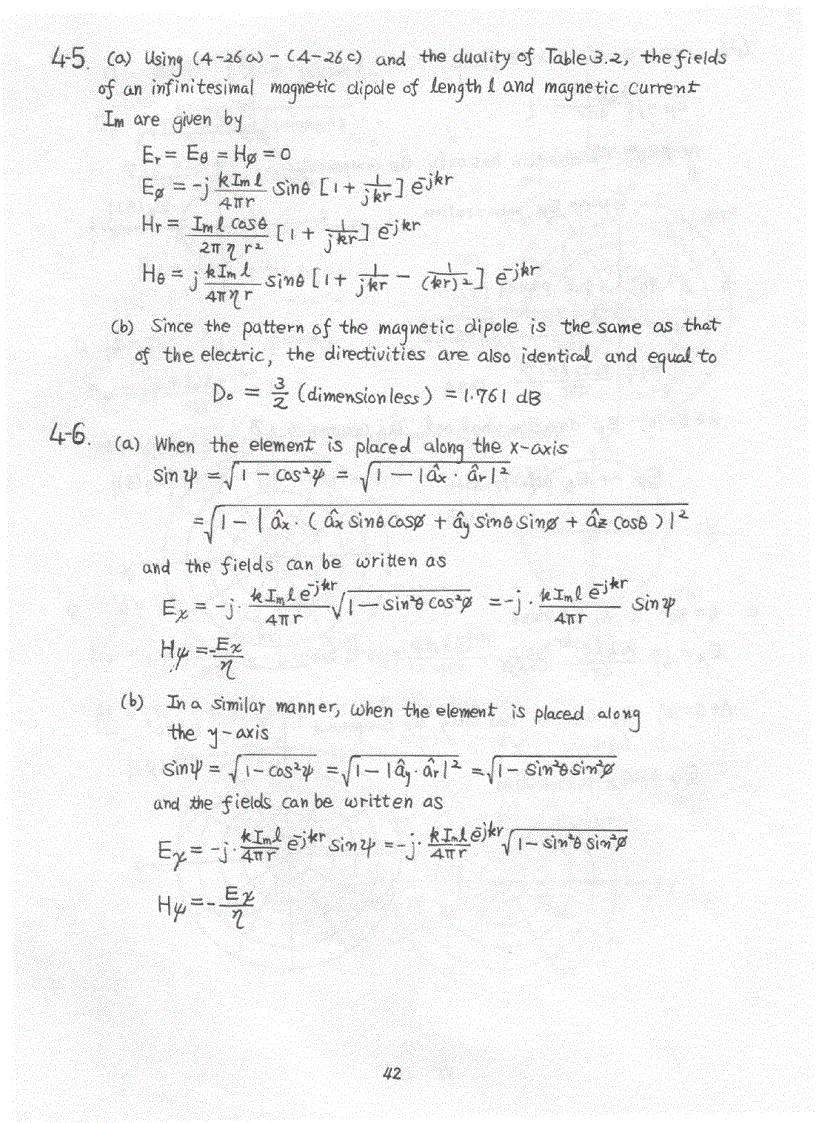 4-5. (a) Using (4-26a) - (4-26c) and the duality of Table 3.2, the fields
of an infinitesimal magnetic dipole of length l and magnetic current
Im are given by
Er = Eθ = Hø = 0
Eø = -j kIml/4πr sinθ [1 + 1/jkr] e^-jkr
Hr = Iml cosθ/2πηr² [1 + 1/jkr] e^-jkr
Hθ = j kIml/4πηr sinθ [1 + 1/jkr - 1/(kr)²] e^-jkr
(b) Since the pattern of the magnetic dipole is the same as that
of the electric, the directivities are also identical and equal to
D₀ = 3/2 (dimensionless) = 1.761 dB
4-6. (a) When the element is placed along the x-axis
sinψ = √(1 - cos²ψ) = √(1 - |âx · âr|²)
= √(1 - |âx · (âx sinθ cosø + ây sinθ sinø + âz cosθ)|²)
and the fields can be written as
Eχ = -j · kIml e^-jkr/4πr √(1 - sin²θ cos²ø) = -j · kIml e^-jkr/4πr sinψ
Hψ = -Eχ/η
(b) In a similar manner, when the element is placed along
the y-axis
sinψ = √(1 - cos²ψ) = √(1 - |ây · âr|²) = √(1 - sin²θ sin²ø)
and the fields can be written as
Eχ = -j · kIml/4πr e^-jkr sinψ = -j · kIml/4πr e^-jkr √(1 - sin²θ sin²ø)
Hψ = - Eχ/η
42